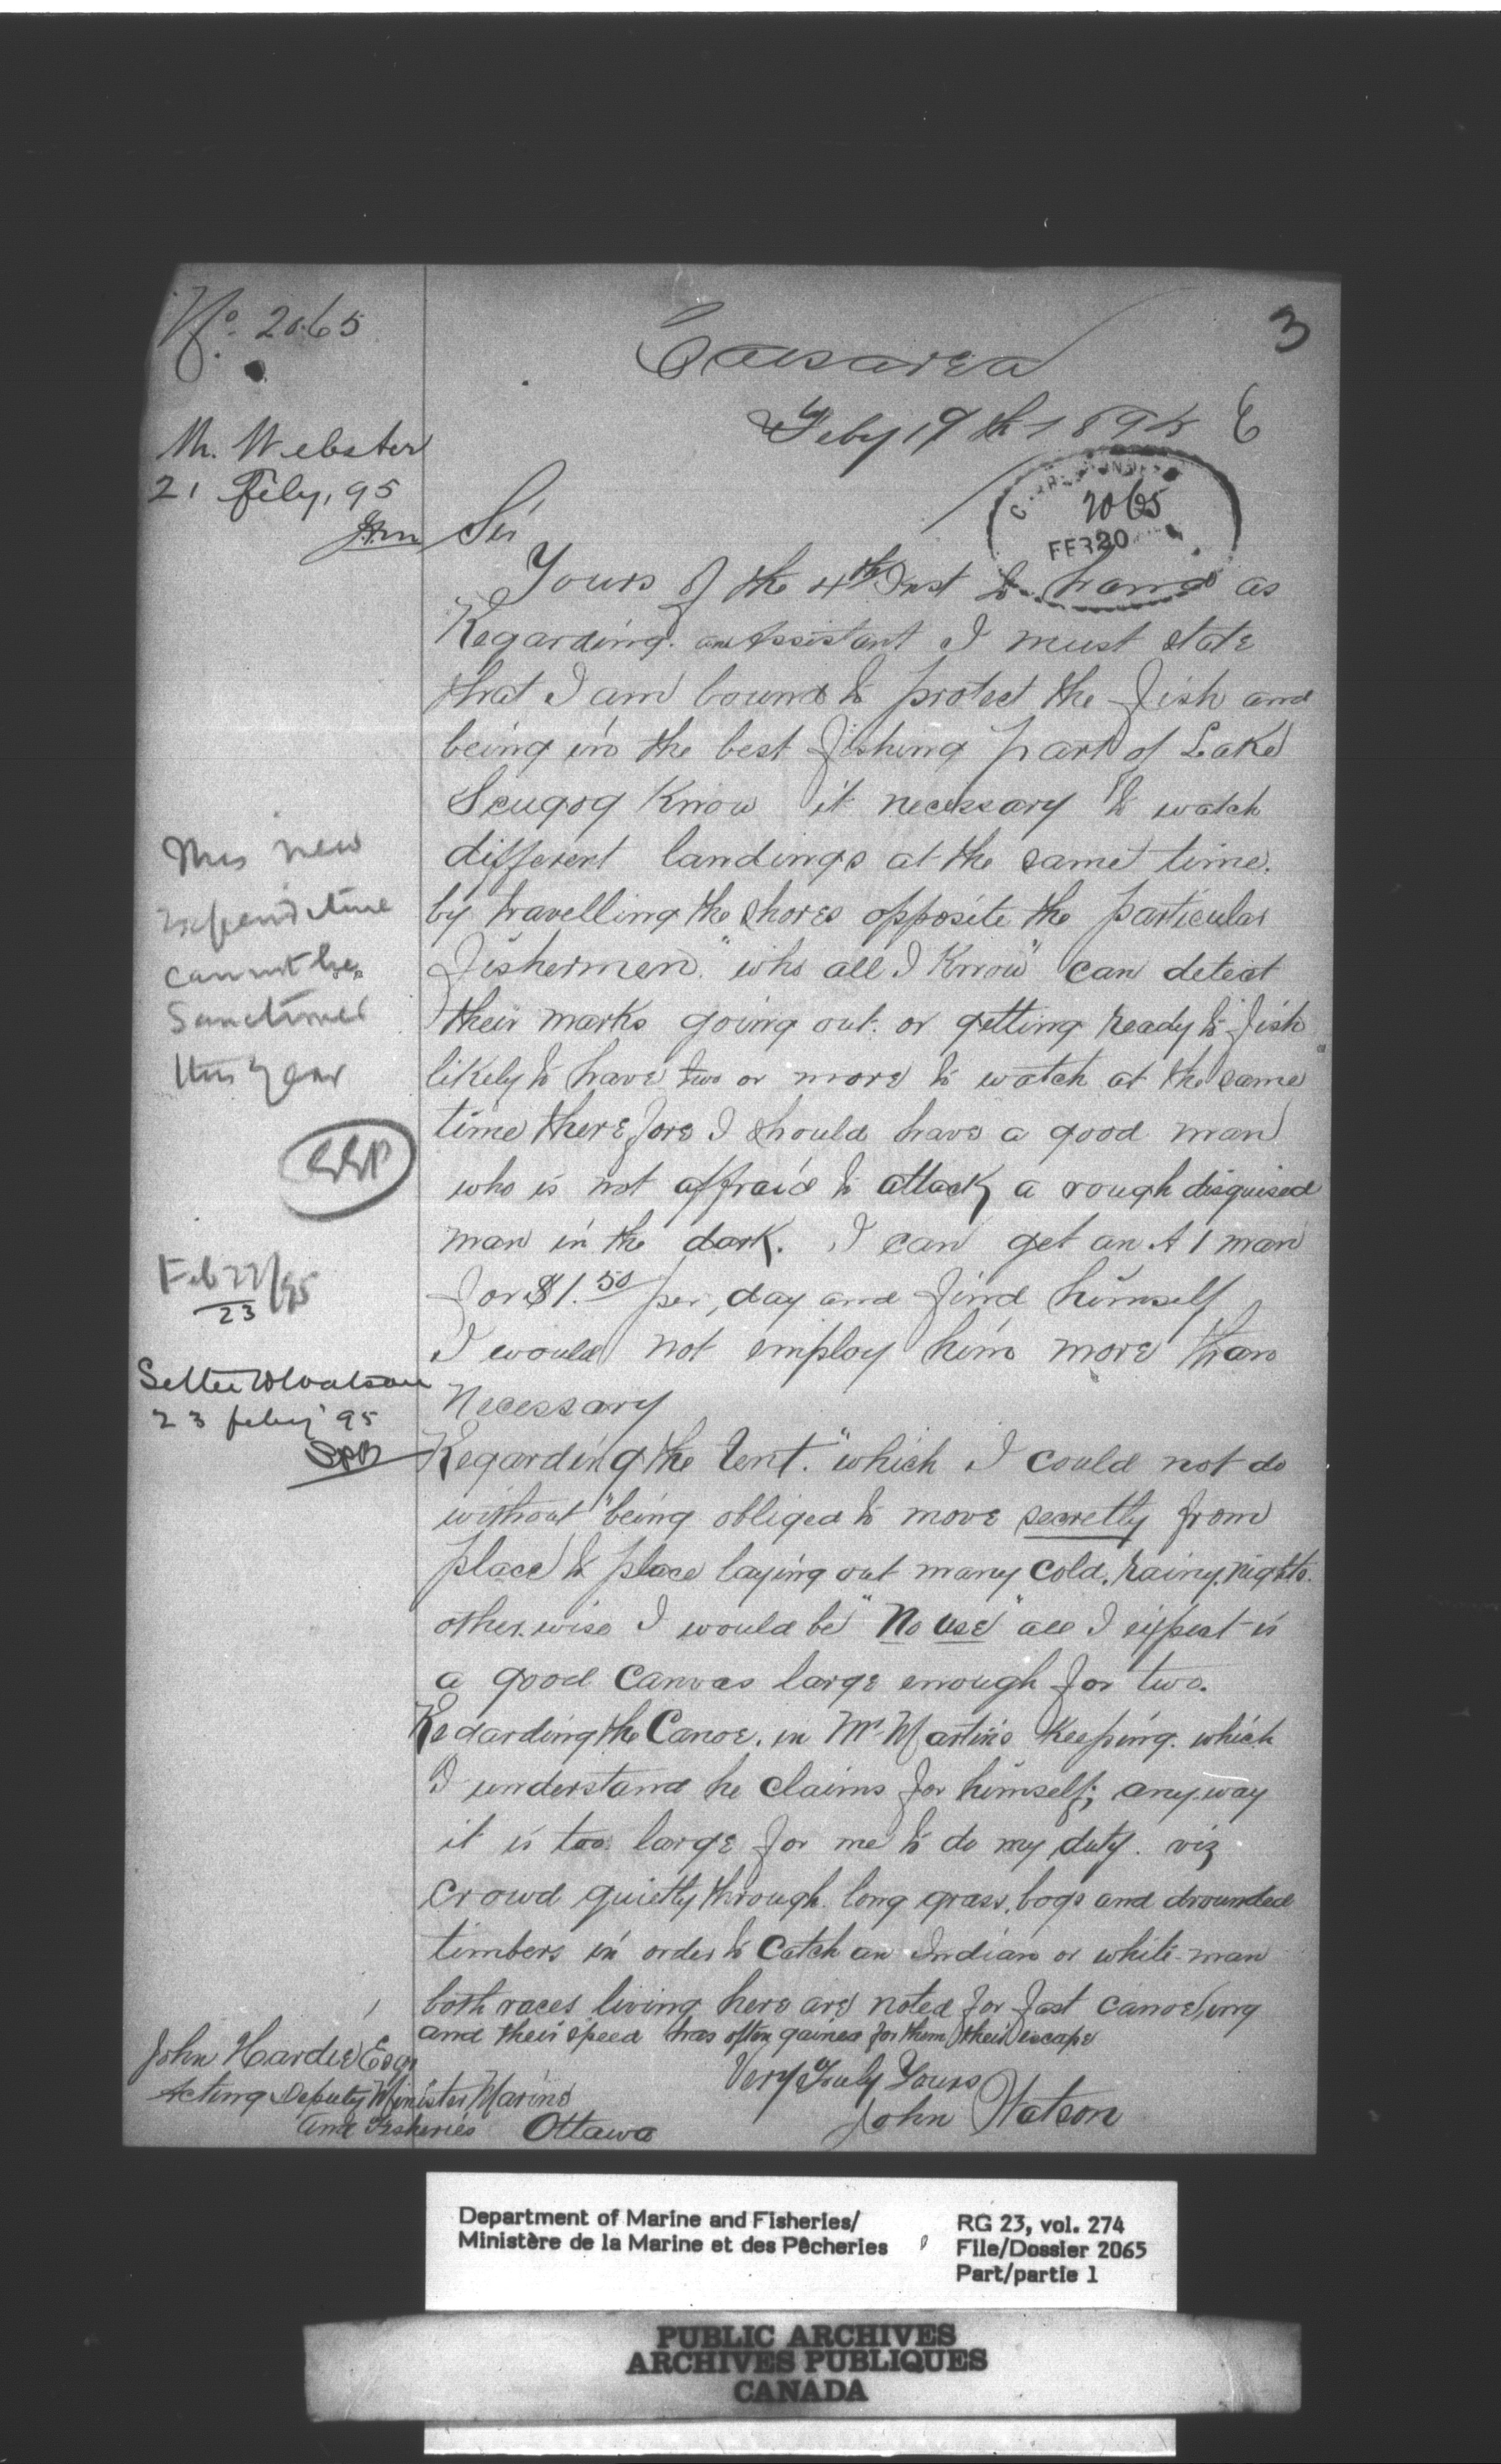 No. 2065
3
Caesarea
Feby 19th 1895
6
M. Webster
21 Feby, 95
2065
FEB 20
Sir
Yours of the 4th Inst to hand as
Regarding an Assistant I must state
that I am bound to protect the fish and
being in the best fishing part of Lake
Scugog Know it necessary to watch
different landings at the same time.
by travelling the shores opposite the particular
fishermen. "who all I Know" can detect
their marks going out. or getting ready to fish
likely to have two or more to watch at the same
time therefore I should have a good man
who is not affraid to attack a rough disguised
man in the dark. I can get an A 1 man
for $1.50 per, day and find himself
I would not employ him more than
Necessary
Regarding the tent. "which I could not do
without" being obliged to move secretly from
place to place laying out many cold, rainy, nights.
other.wise I would be "No use" all I expect is
a good canvas large enough for two.
Regarding the Canoe. in Mr Martin's Keeping. which
I understand he claims for himself; any.way
it is too large for me to do my duty. viz
crowd quietly through long grass, bogs and drounded
timbers in order to catch an Indian or white-man
both races living here are noted for fast canoeing
and their speed has often gained for them their escape
Very Truly Yours
John Watson
This new
expenditure
cannot be
Sanctioned
this year
Feb 22/95
23
Letter W Watson
23 feby 95
John Hardie Esqr
Acting Deputy Minister Marine
and Fisheries Ottawa
Department of Marine and Fisheries/
Ministère de la Marine et des Pêcheries
RG 23, vol. 274
File/Dossier 2065
Part/partie 1
PUBLIC ARCHIVES
ARCHIVES PUBLIQUES
CANADA